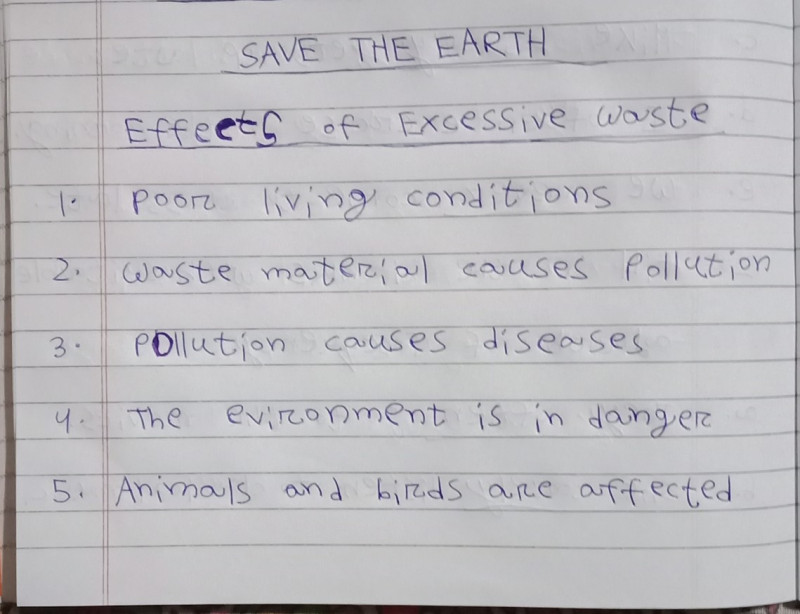 SAVE THE EARTH
Effects of Excessive waste
1. Poor living conditions
2. waste material causes Pollution
3. POllution causes diseases
4. The evironment is in danger
5. Animals and birds are affected